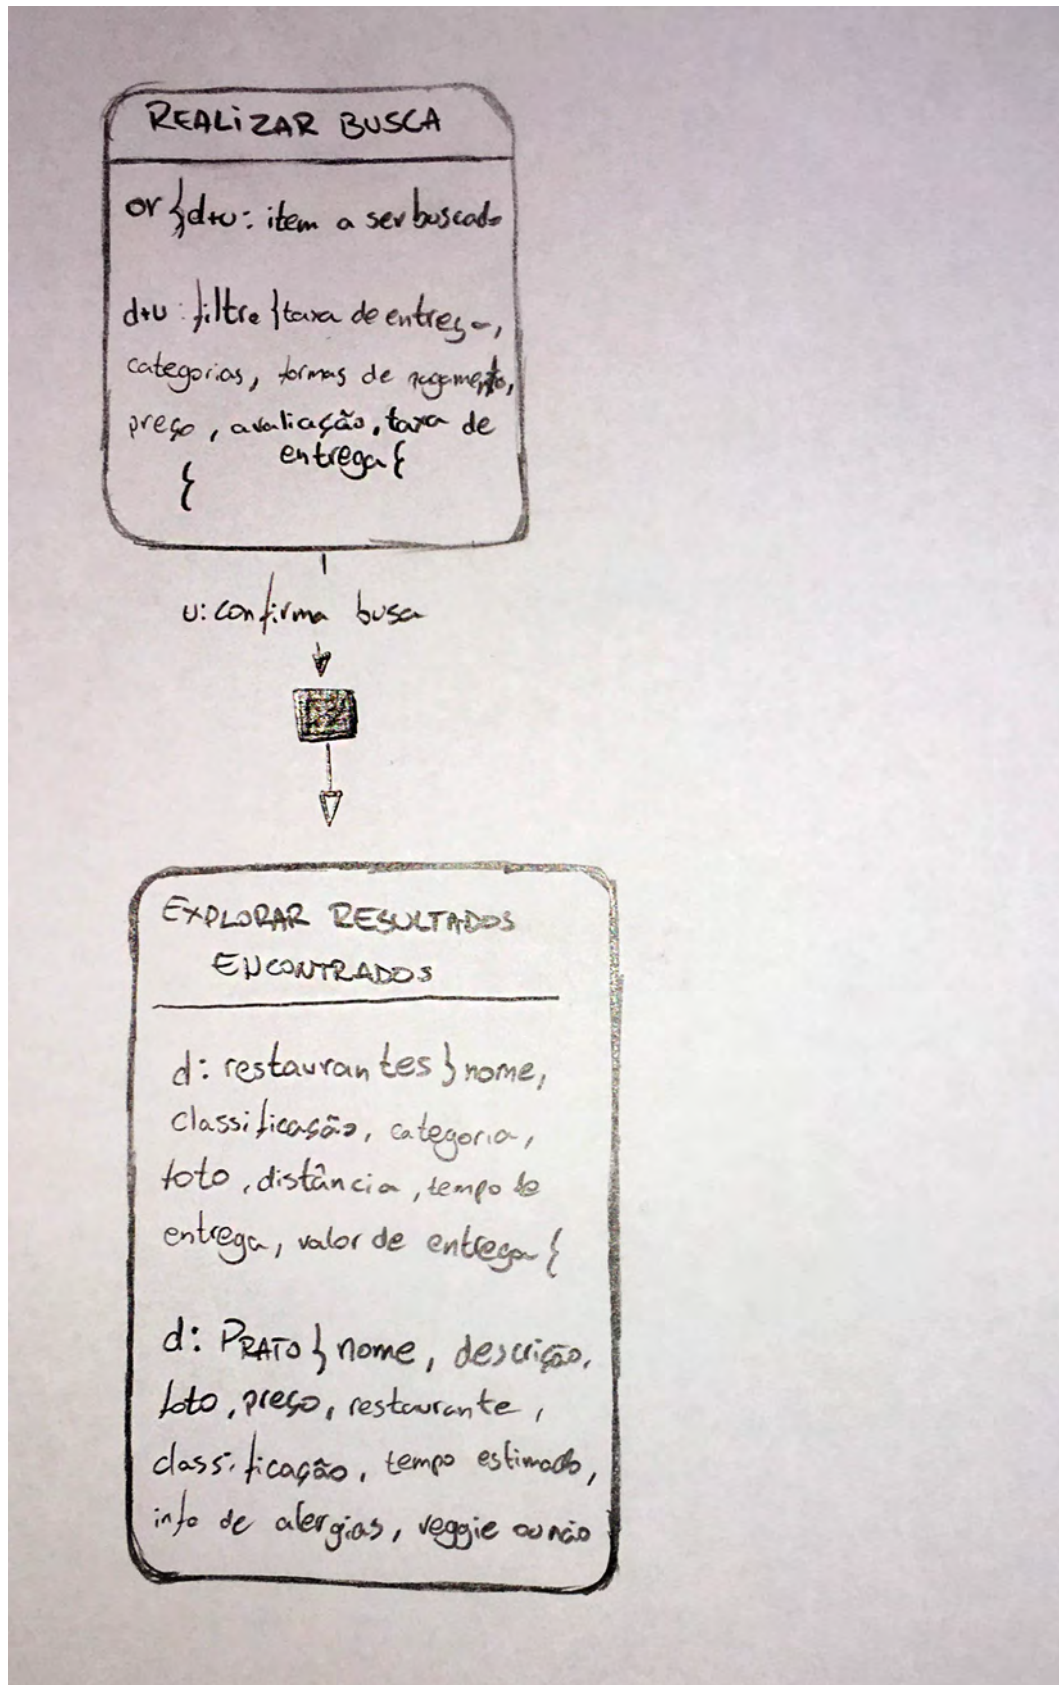 REALIZAR BUSCA
or }d+u: item a ser buscado
d+u: filtro }taxa de entrega,
categorias, formas de pagamento,
preço, avaliação, taxa de
entrega{
{
u: confirma busca
EXPLORAR RESULTADOS
ENCONTRADOS
d: restaurantes } nome,
classificação, categoria,
foto, distância, tempo de
entrega, valor de entrega {
d: PRATO } nome, descrição,
foto, preço, restaurante,
classificação, tempo estimado,
info de alergias, veggie ou não